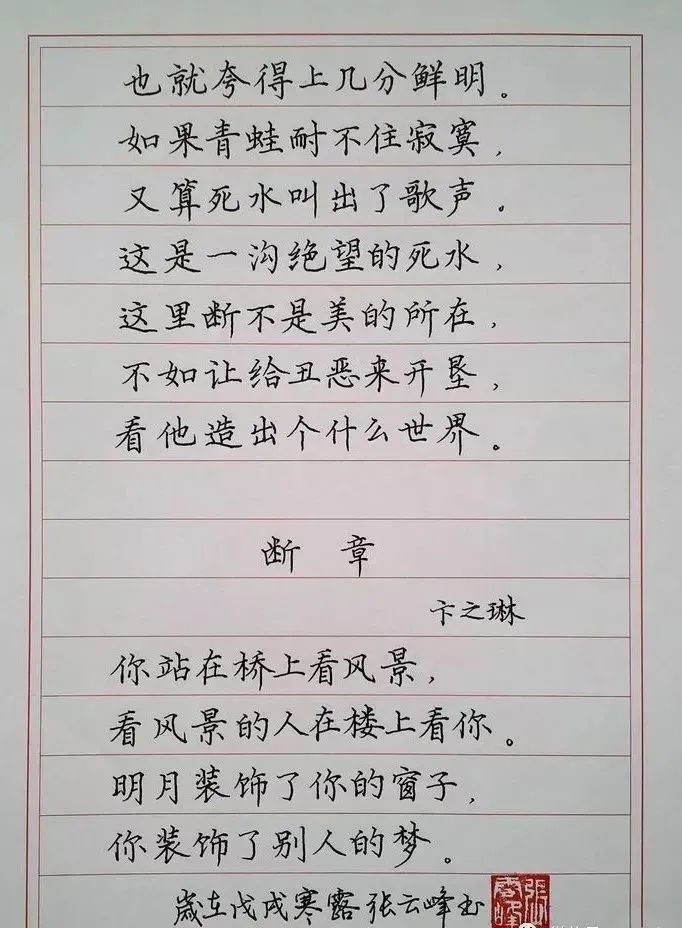 也就夸得上几分鲜明。
如果青蛙耐不住寂寞，
又算死水叫出了歌声。
这是一沟绝望的死水，
这里断不是美的所在，
不如让给丑恶来开垦，
看他造出个什么世界。
断 章
卞之琳
你站在桥上看风景，
看风景的人在楼上看你。
明月装饰了你的窗子，
你装饰了别人的梦。
岁在戊戌寒露张云峰书